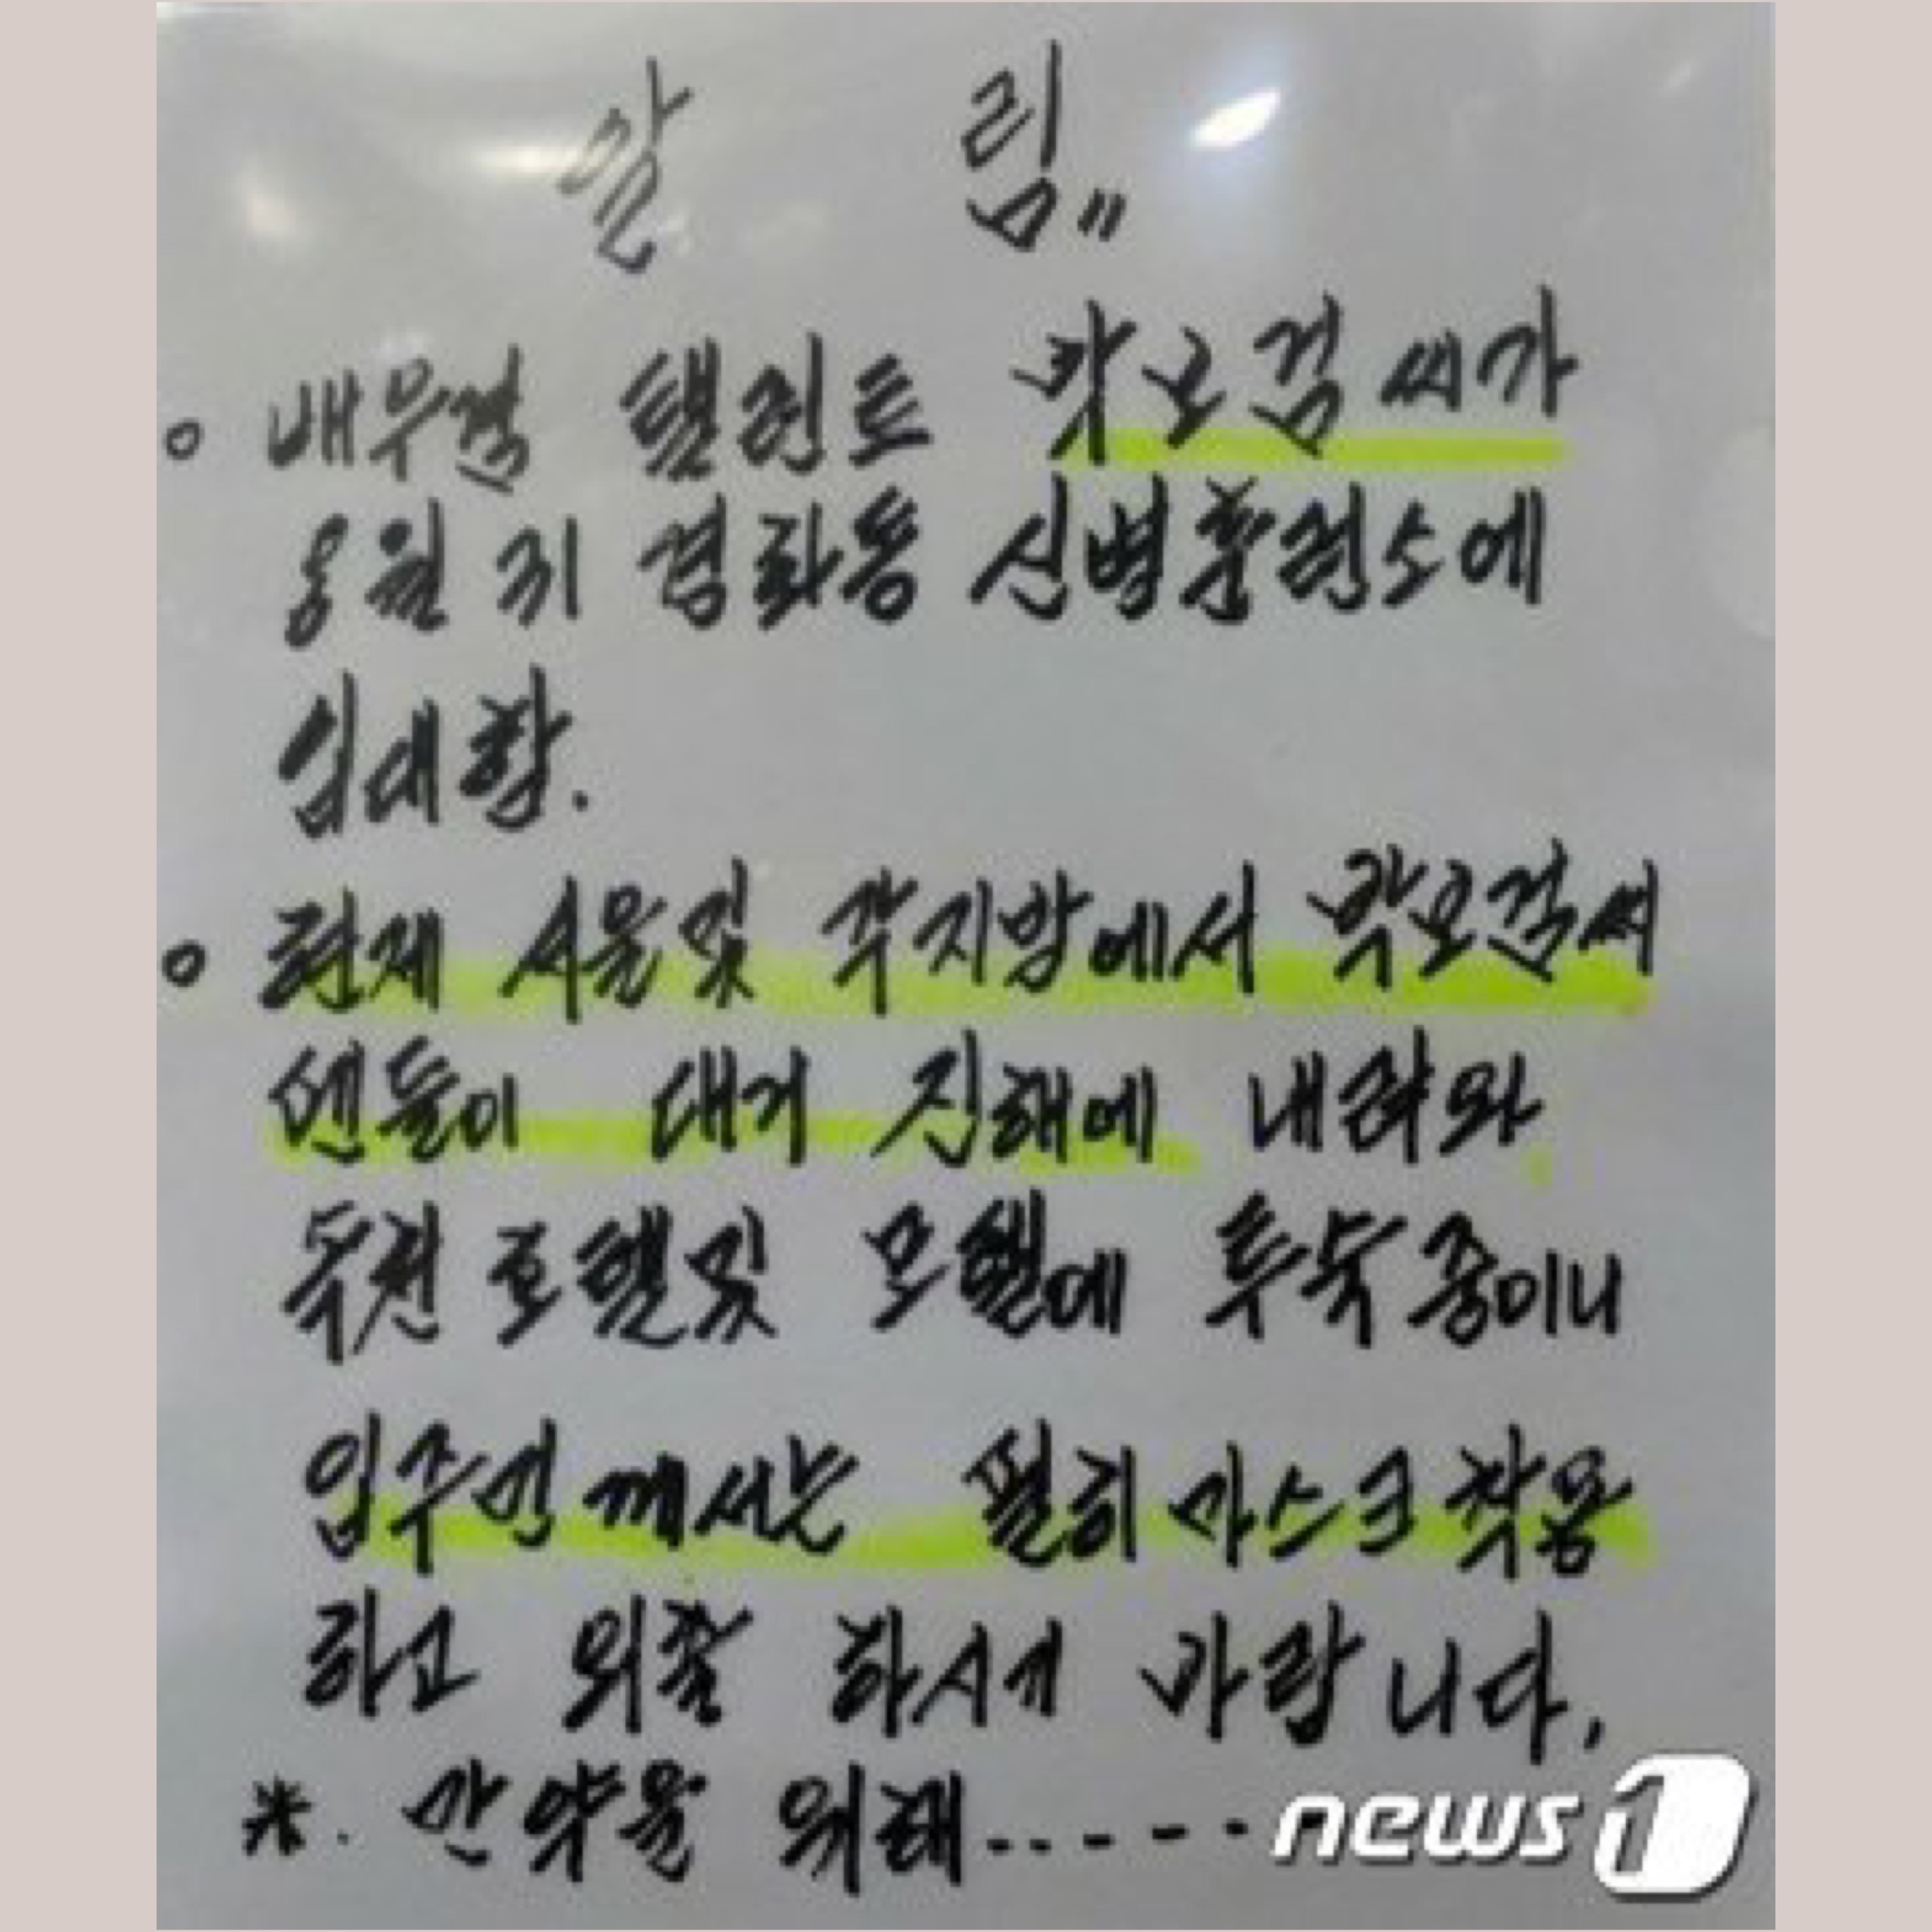 알 림"
○ 배우겸 탤런트 박보검씨가
웅원 리 경화동 신병훈련소에
입대함.
○ 현재 서울및 각지방에서 박보검씨
팬들이 대거 진해에 내려와
독천 호텔및 모텔에 투숙중이니
입주민께서는 필히 마스크착용
하고 외출 하시게 바랍니다.
※. 만약을 위해-----
news1